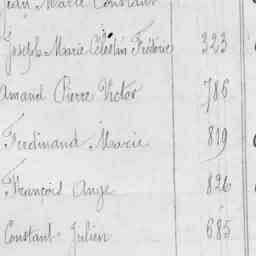 Jean Marie Constant
Joseph Marie Célestin Frédéric 323
Amand Pierre Victor 786
Ferdinand Marie 819
François Ange 826
Constant Julien 685